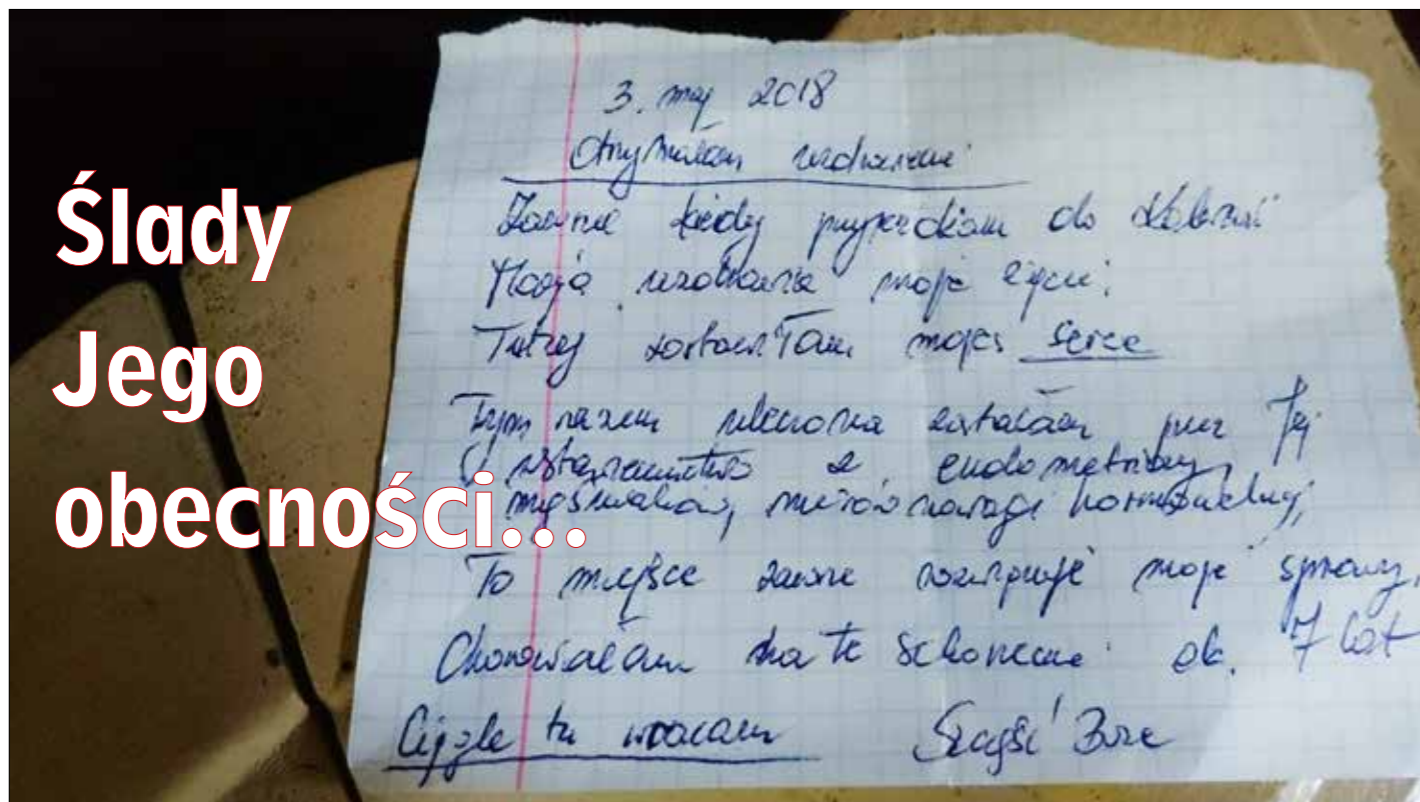 Ślady
Jego
obecności...
3. maj 2018
Otrzymałam uzdrowienie
Zawsze kiedy przyjeżdżam do
Maryja uzdrawia moje życie.
Tutaj zostawiłam moje serce
Tym razem uleczona zostałam przez Jej
wstawiennictwo z endometriozy,
mięśniaków, nierównowagi hormonalnej,
To miejsce zawsze rozwiązuje moje sprawy.
Chorowałam na te schorzenia ok. 7 lat
Ciągle tu wracam Szczęść Boże